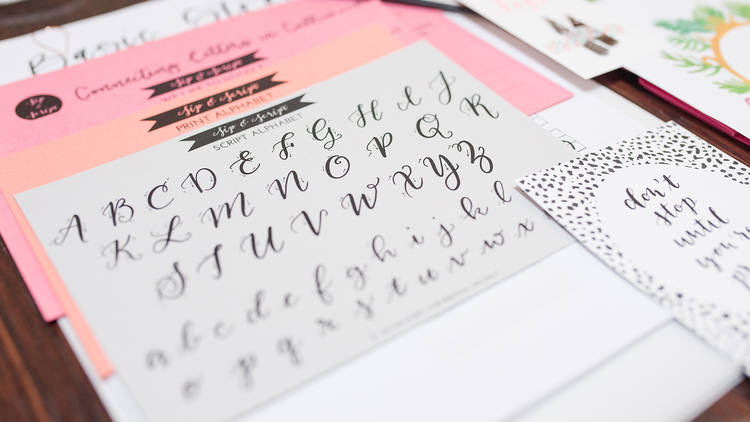 Basic
Connecting Letters in Cal
Sip & Script
Sip & Script
WE LIKE TO DOODLE
Sip & Script
PRINT ALPHABET
Sip & Script
SCRIPT ALPHABET
A B C D E F G H I J
K L M N O P Q R
S T U V W X Y Z
a b c d e f g h i j k l
o p q r s t u v w x
don't
stop
until
you're